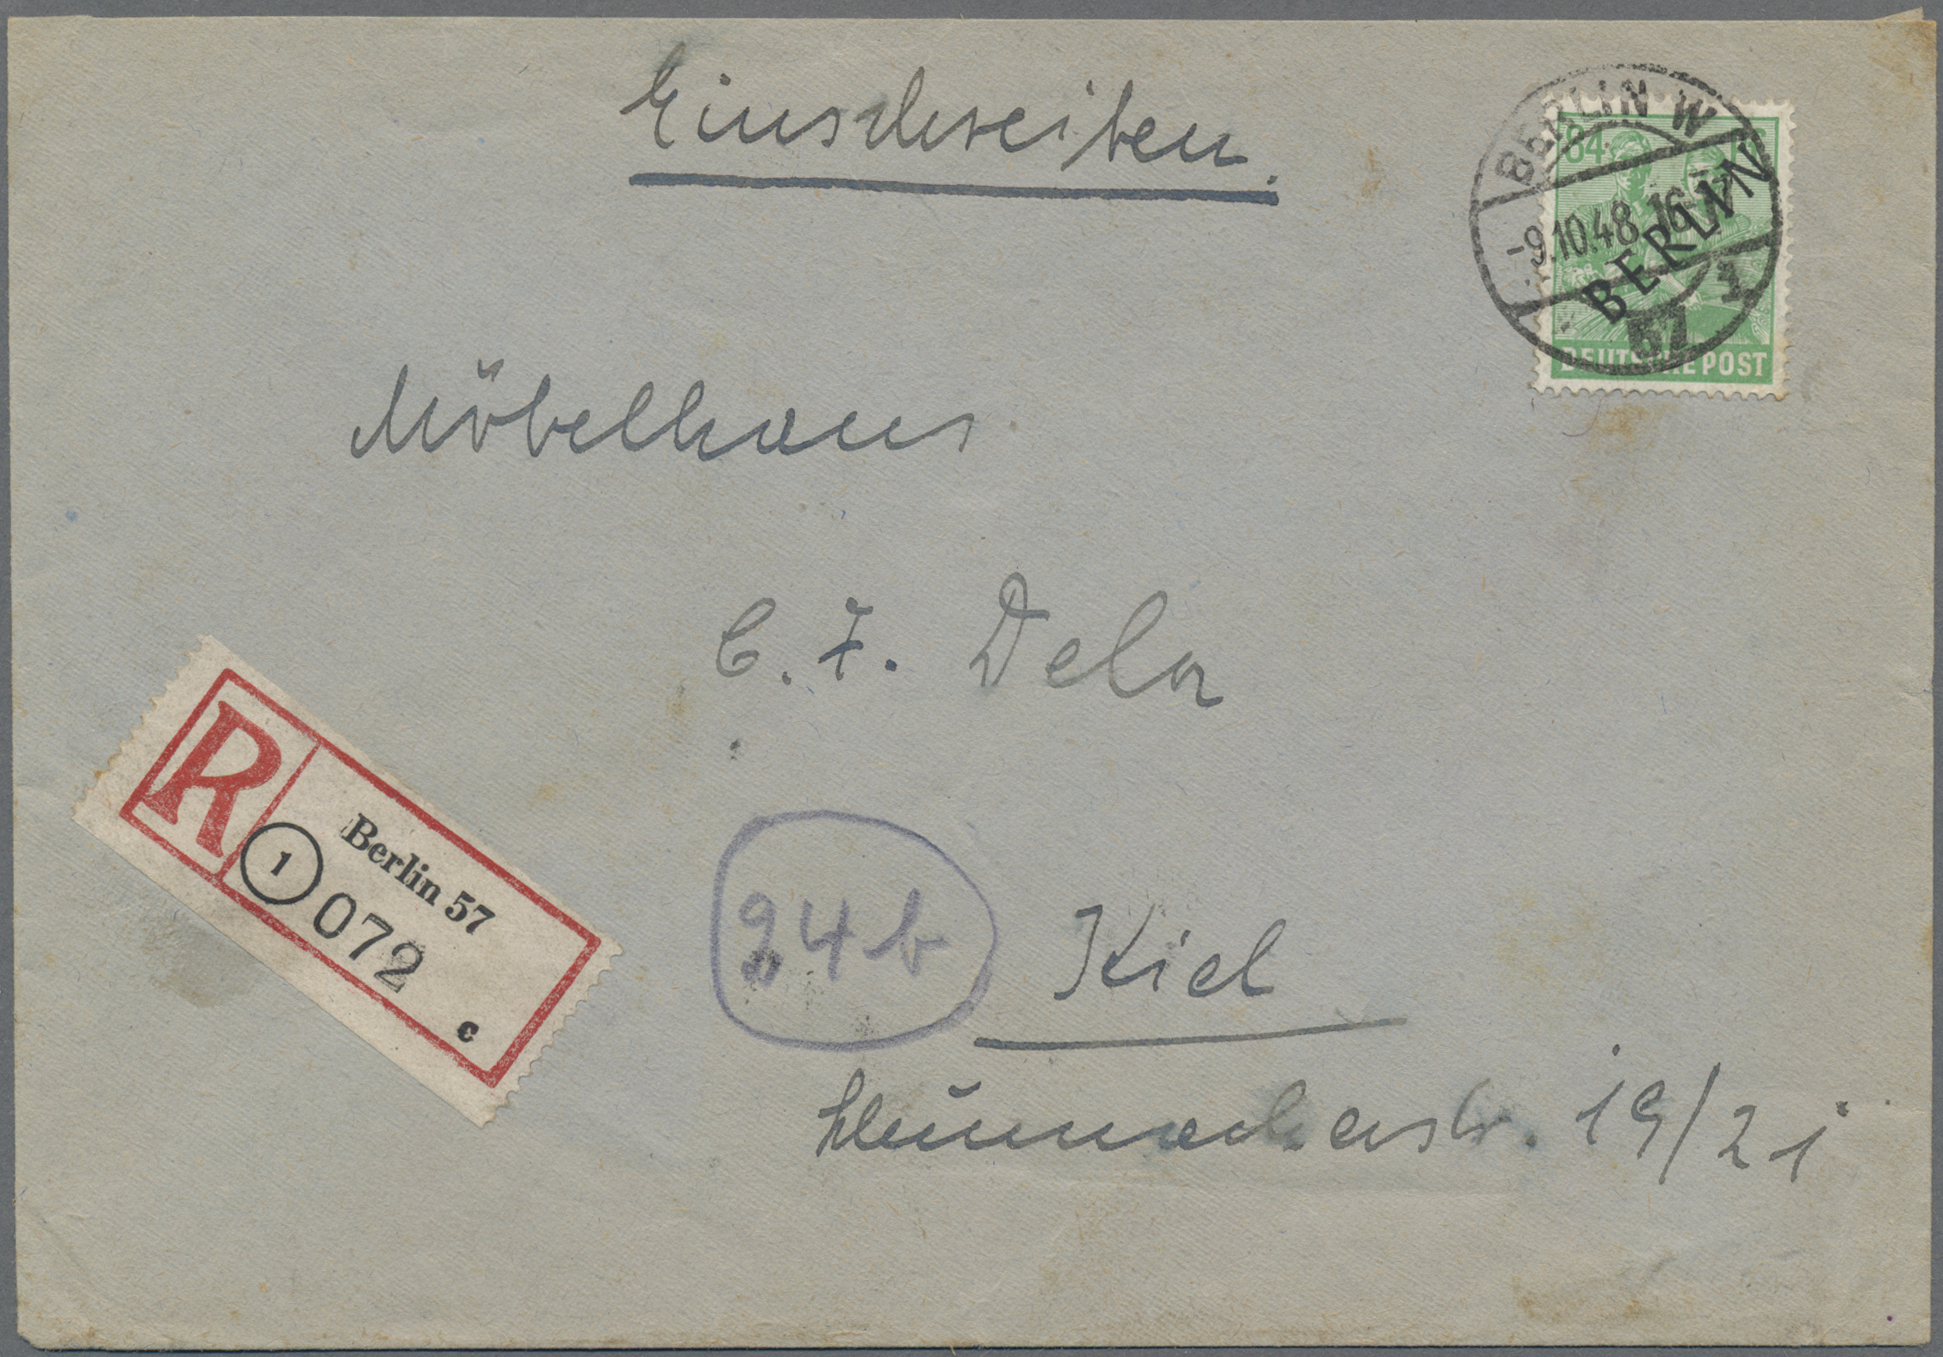 Einschreiben.
BERLIN W
84
-9.10.48.16-17
BERLIN
57
DEUTSCHE POST
Möbelhaus
C. F. Dela
R
1
Berlin 57
072
c
24b
Kiel
19/21